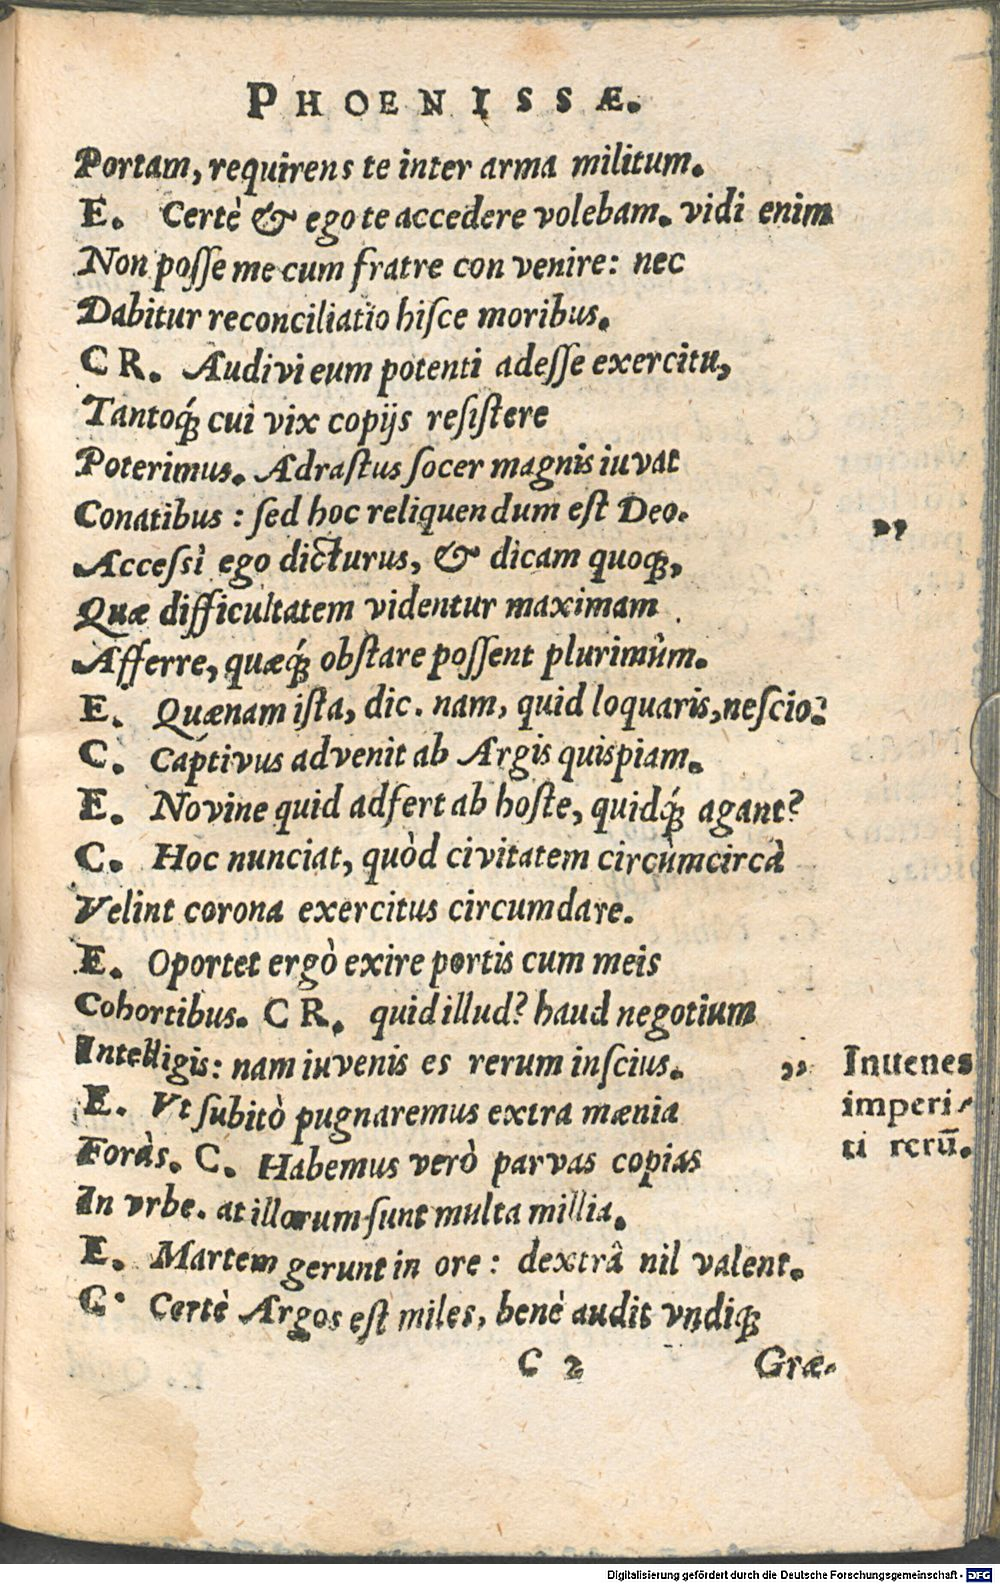 PHOENISSÆ.
Portam, requirens te inter arma militum.
E. Certè & ego te accedere volebam. vidi enim
Non posse me cum fratre convenire: nec
Dabitur reconciliatio hisce moribus.
CR. Audivi eum potenti adesse exercitu,
Tantoq́; cui vix copijs resistere
Poterimus. Adrastus socer magnis iuvat
Conatibus: sed hoc reliquendum est Deo.
„
Accessi ego dicturus, & dicam quoq;,
Quæ difficultatem videntur maximam
Afferre, quæq́; obstare possent plurimûm.
E. Quænam ista, dic. nam, quid loquaris, nescio?
C. Captivus advenit ab Argis quispiam.
E. Novine quid adfert ab hoste, quidq́; agant?
C. Hoc nunciat, quòd civitatem circùmcircà
Velint corona exercitus circumdare.
E. Oportet ergò exire portis cum meis
Cohortibus. CR. quid illud? haud negotium
Intelligis: nam iuvenis es rerum inscius.
„ Iuuenes
imperi-
ti rerū.
E. Vt subitò pugnaremus extra mænia
Foràs. C. Habemus verò parvas copias
In vrbe. at illorum sunt multa millia.
E. Martem gerunt in ore: dextrâ nil valent.
C. Certè Argos est miles, benè audit vndiq;
C 2 Græ-
Digitalisierung gefördert durch die Deutsche Forschungsgemeinschaft - DFG